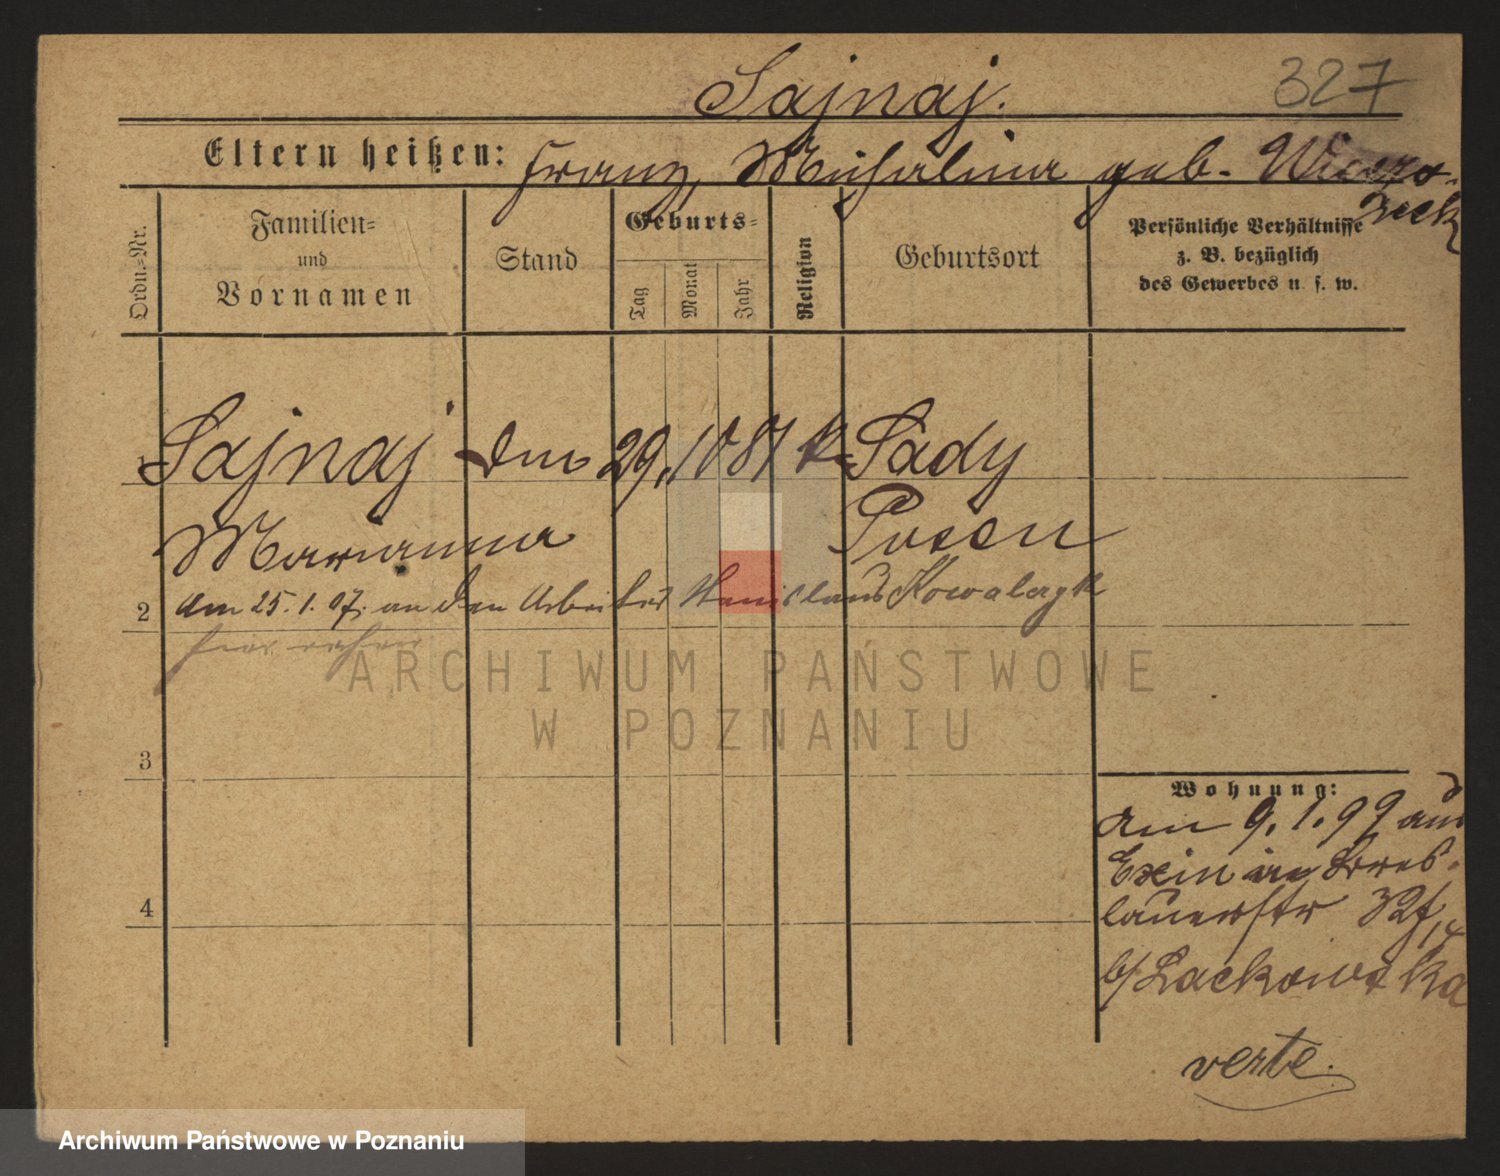 Sajnaj.
327
Eltern heißen: Franz, Michalina geb. Wieczo-
reck
Ordn.-Nr.
Familien-
und
Vornamen
Stand
Geburts-
Tag
Monat
Jahr
Religion
Geburtsort
Persönliche Verhältnisse
z. B. bezüglich
des Gewerbes u. s. w.
1 Sajnaj 29. 10 81 k Sady
Marianna Posen
2 am 25. 1. 07. an den Arbeiter Stanislaus Kowalczyk
3
4
Wohnung:
am 9. 1. 99 aus
Exin in Bres-
lauerstr 32
b/ Lackowska
verte.
ARCHIWUM PAŃSTWOWE
W POZNANIU
Archiwum Państwowe w Poznaniu